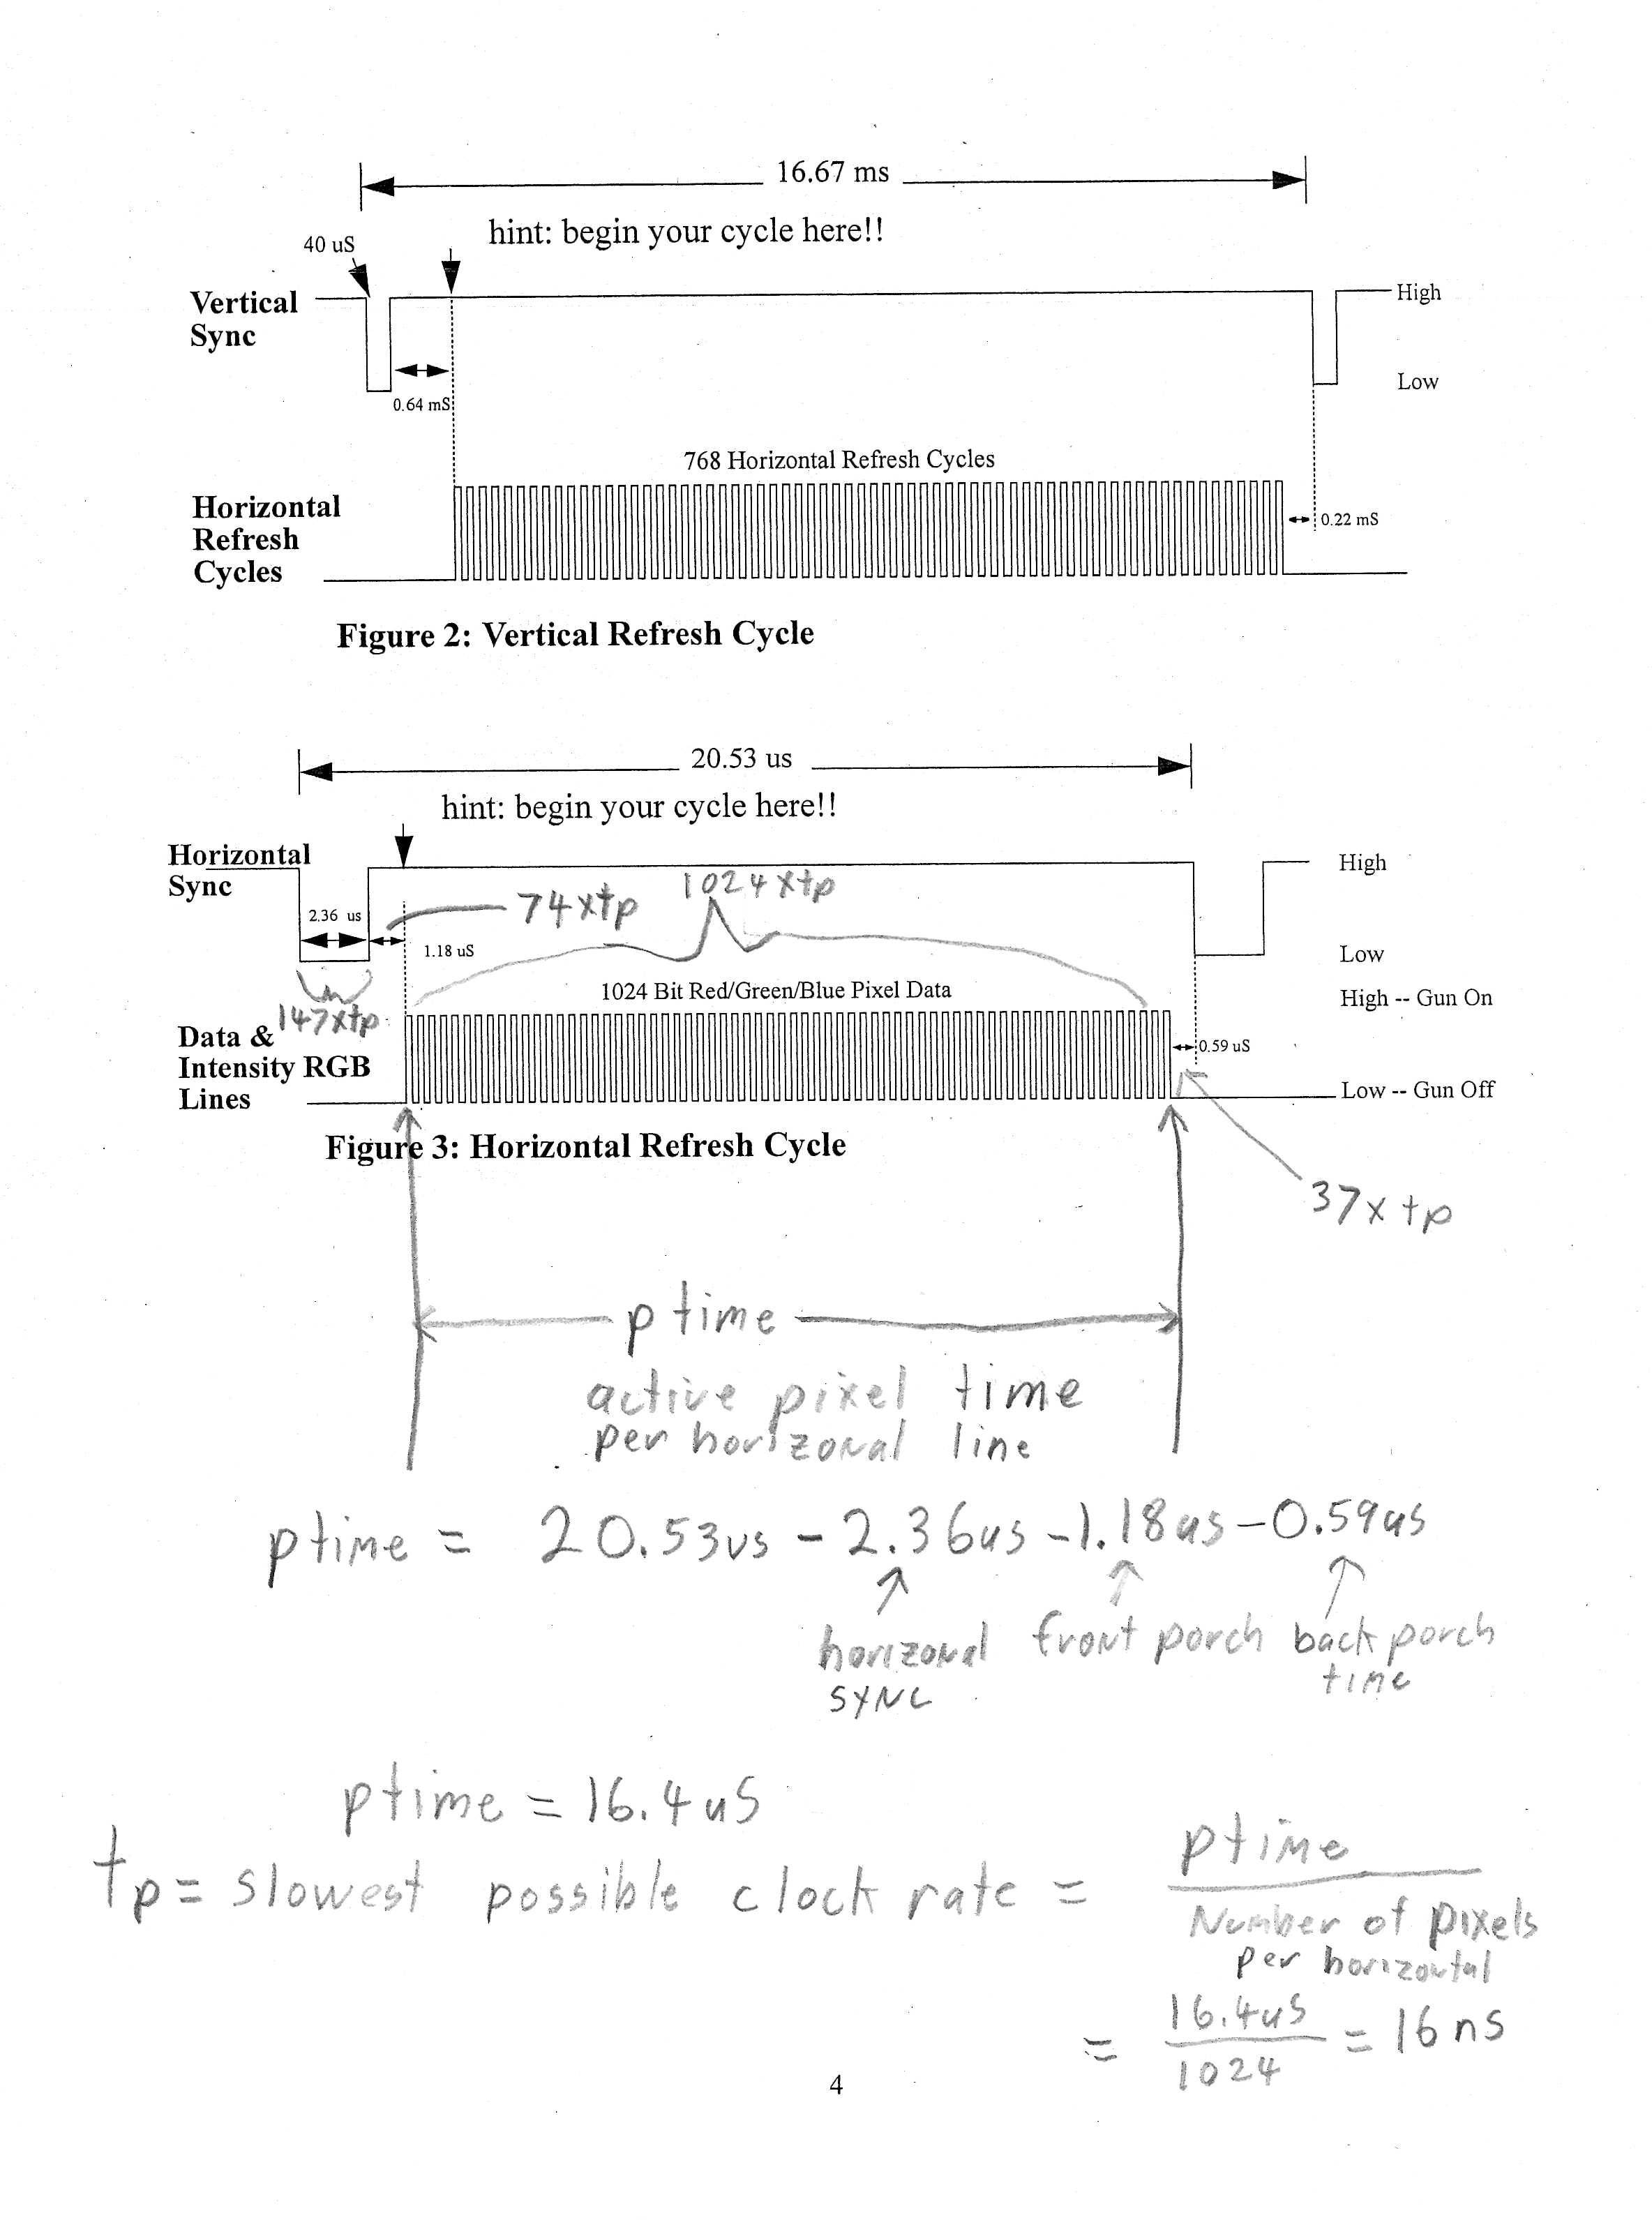 16.67 ms
hint: begin your cycle here!!
40 uS
Vertical
Sync
High
Low
0.64 mS
768 Horizontal Refresh Cycles
Horizontal
Refresh
Cycles
0.22 mS
Figure 2: Vertical Refresh Cycle
20.53 us
hint: begin your cycle here!!
Horizontal
Sync
High
1024xtp
74xtp
2.36 us
1.18 uS
Low
1024 Bit Red/Green/Blue Pixel Data
High -- Gun On
147xtp
Data &
Intensity RGB
Lines
0.59 uS
Low -- Gun Off
Figure 3: Horizontal Refresh Cycle
37x tp
ptime
active pixel time
per horizonal line
ptime = 20.53us - 2.36us - 1.18us - 0.59us
horizonal front porch back porch
SYNC time
ptime = 16.4uS
tp = slowest possible clock rate = ptime
Number of pixels
per horizontal
= 16.4uS / 1024 = 16 ns
4